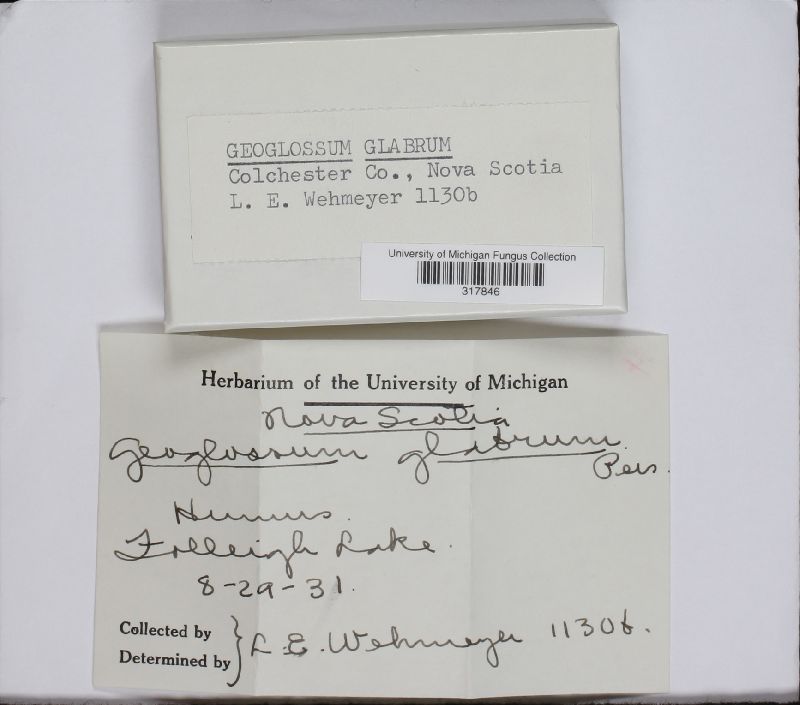 GEOGLOSSUM GLABRUM
Colchester Co., Nova Scotia
L. E. Wehmeyer 1130b
University of Michigan Fungus Collection
317846
Herbarium of the University of Michigan
Nova Scotia
Geoglossum glabrum
Pers.
Humus.
Folleigh Lake.
8-29-31.
Collected by
Determined by
L. E. Wehmeyer 1130b.